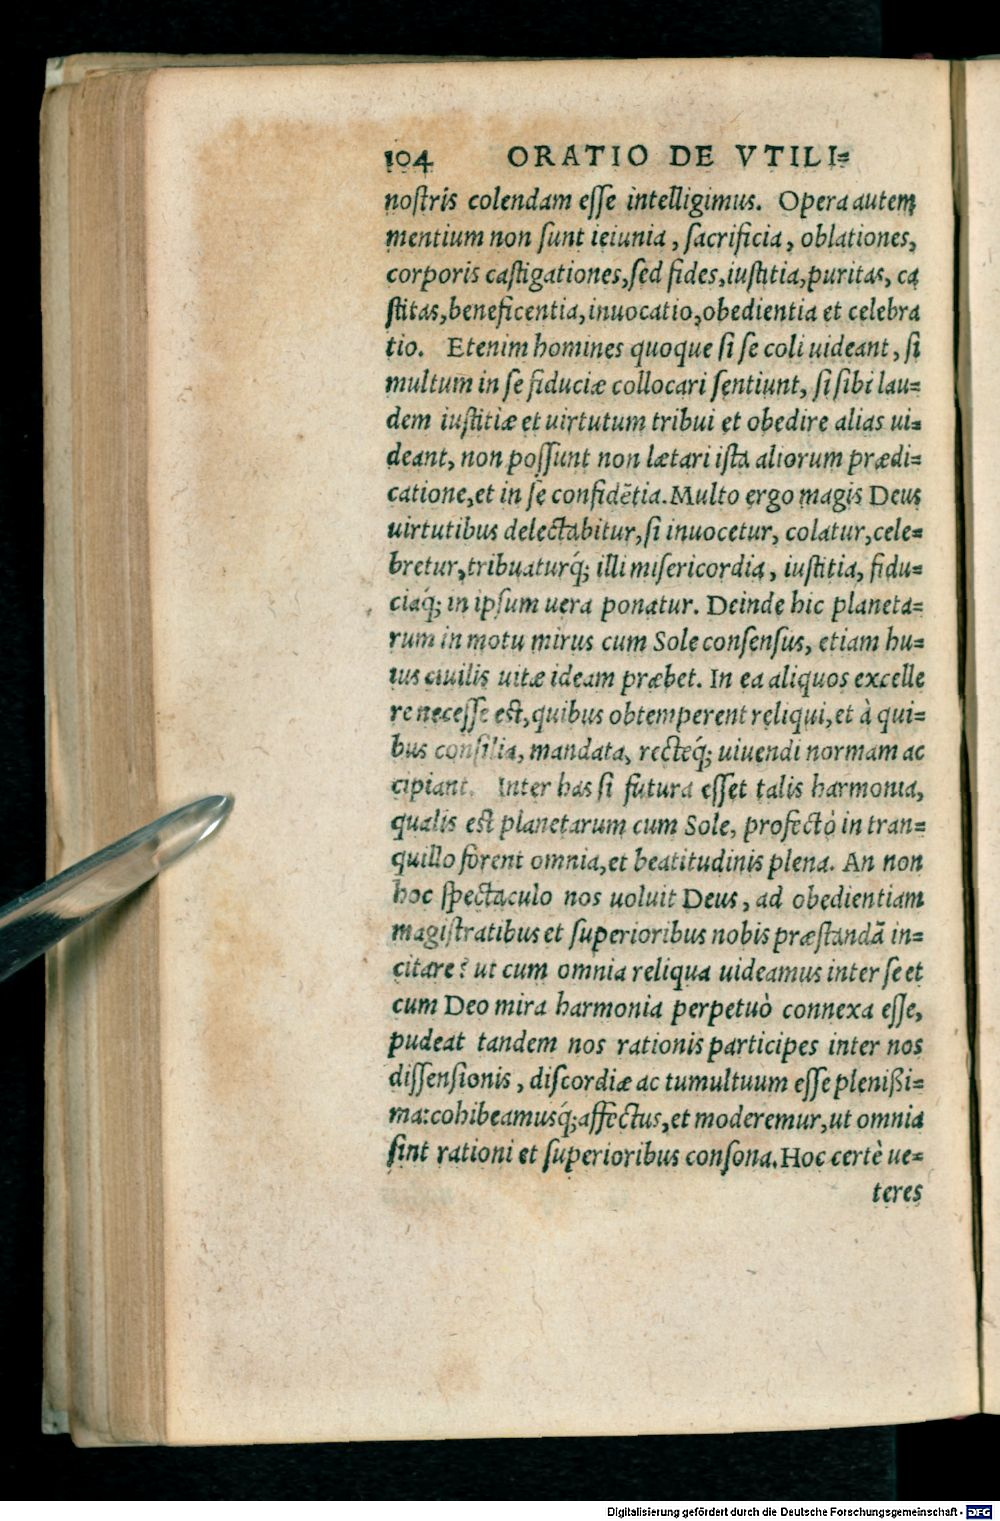 104 ORATIO DE VTILI=
nostris colendam esse intelligimus. Opera autem
mentium non sunt ieiunia, sacrificia, oblationes,
corporis castigationes, sed fides, iustitia, puritas, ca
stitas, beneficentia, inuocatio, obedientia et celebra
tio. Etenim homines quoque si se coli uideant, si
multum in se fiduciæ collocari sentiunt, si sibi lau=
dem iustitiæ et uirtutum tribui et obedire alias ui=
deant, non possunt non lætari ista aliorum prædi=
catione, et in se confidẽtia. Multo ergo magis Deus
uirtutibus delectabitur, si inuocetur, colatur, cele=
bretur, tribuaturq́; illi misericordia, iustitia, fidu=
ciaq́; in ipsum uera ponatur. Deinde hic planeta=
rum in motu mirus cum Sole consensus, etiam hu=
ius ciuilis uitæ ideam præbet. In ea aliquos excelle
re necesse est, quibus obtemperent reliqui, et à qui=
bus consilia, mandata, recteq́; uiuendi normam ac
cipiant. Inter has si futura esset talis harmonia,
qualis est planetarum cum Sole, profectò in tran=
quillo forent omnia, et beatitudinis plena. An non
hoc spectaculo nos uoluit Deus, ad obedientiam
magistratibus et superioribus nobis præstandã in=
citare? ut cum omnia reliqua uideamus inter se et
cum Deo mira harmonia perpetuò connexa esse,
pudeat tandem nos rationis participes inter nos
dissensionis, discordiæ ac tumultuum esse plenißi=
ma: cohibeamusq́; affectus, et moderemur, ut omnia
sint rationi et superioribus consona. Hoc certè ue=
teres
Digitalisierung gefördert durch die Deutsche Forschungsgemeinschaft - DFG